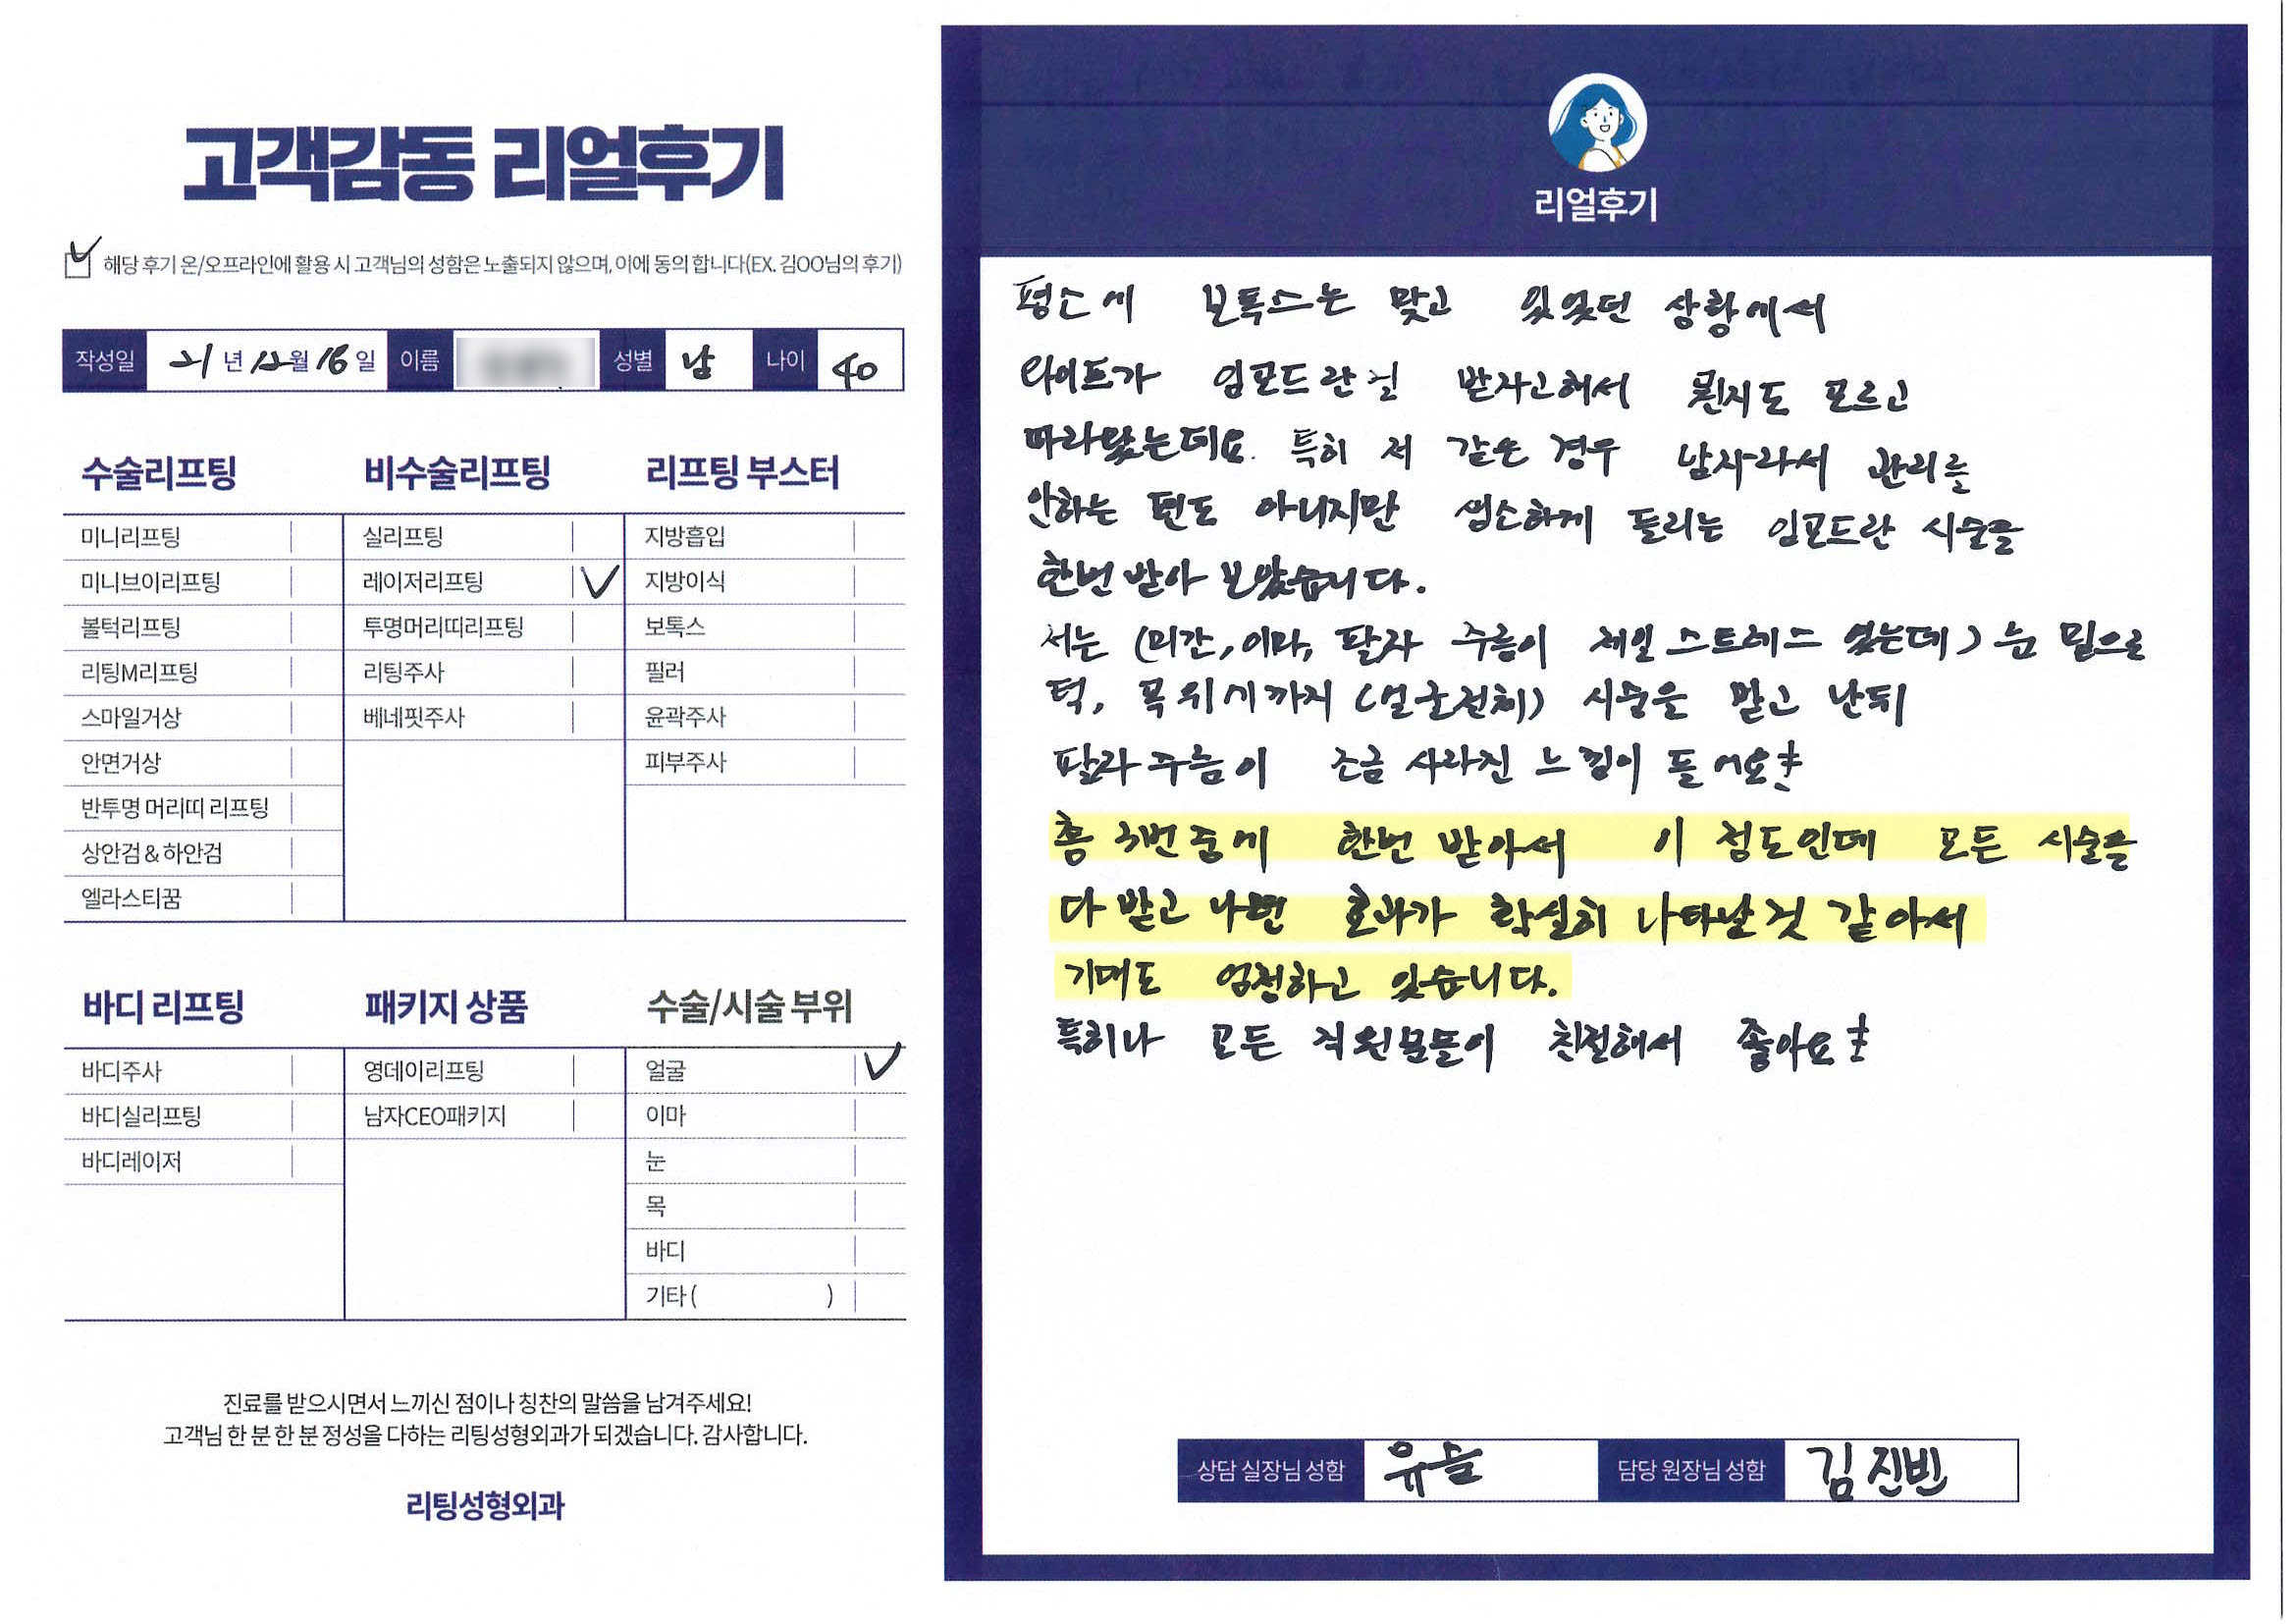 고객감동 리얼후기
해당 후기 온/오프라인에 활용 시 고객님의 성함은 노출되지 않으며, 이에 동의 합니다(EX. 김OO님의 후기)
작성일 21년 12월 16일 이름 성별 남 나이 40
수술리프팅
미니리프팅
미니브이리프팅
볼턱리프팅
리팅M리프팅
스마일거상
안면거상
반투명 머리띠 리프팅
상안검&하안검
엘라스티꿈
비수술리프팅
실리프팅
레이저리프팅
투명머리띠리프팅
리팅주사
베네핏주사
리프팅 부스터
지방흡입
지방이식
보톡스
필러
윤곽주사
피부주사
바디 리프팅
바디주사
바디실리프팅
바디레이저
패키지 상품
영데이리프팅
남자CEO패키지
수술/시술 부위
얼굴
이마
눈
목
바디
기타 ( )
진료를 받으시면서 느끼신 점이나 칭찬의 말씀을 남겨주세요!
고객님 한 분 한 분 정성을 다하는 리팅성형외과가 되겠습니다. 감사합니다.
리팅성형외과
리얼후기
평소에 보톡스는 맞고 있었던 상황에서
와이프가 임포드란걸 받자고해서 뭔지도 모르고
따라왔는데요. 특히 저 같은 경우 남자라서 관리를
안하는 편도 아니지만 생소하게 들리는 임포드란 시술을
한번 받아 보았습니다.
저는 (미간, 이마, 팔자 주름이 제일 스트레스 였는데) 눈 밑으로
턱, 목 위까지 (얼굴전체) 시술을 받고 난뒤
팔자 주름이 조금 사라진 느낌이 들어요!
총 3번 중에 한번 받아서 이 정도인데 모든 시술을
다 받고 나면 효과가 확실히 나타날 것 같아서
기대도 엄청하고 있습니다.
특히나 모든 직원분들이 친절해서 좋아요!
상담 실장님 성함 유슬 담당 원장님 성함 김진빈